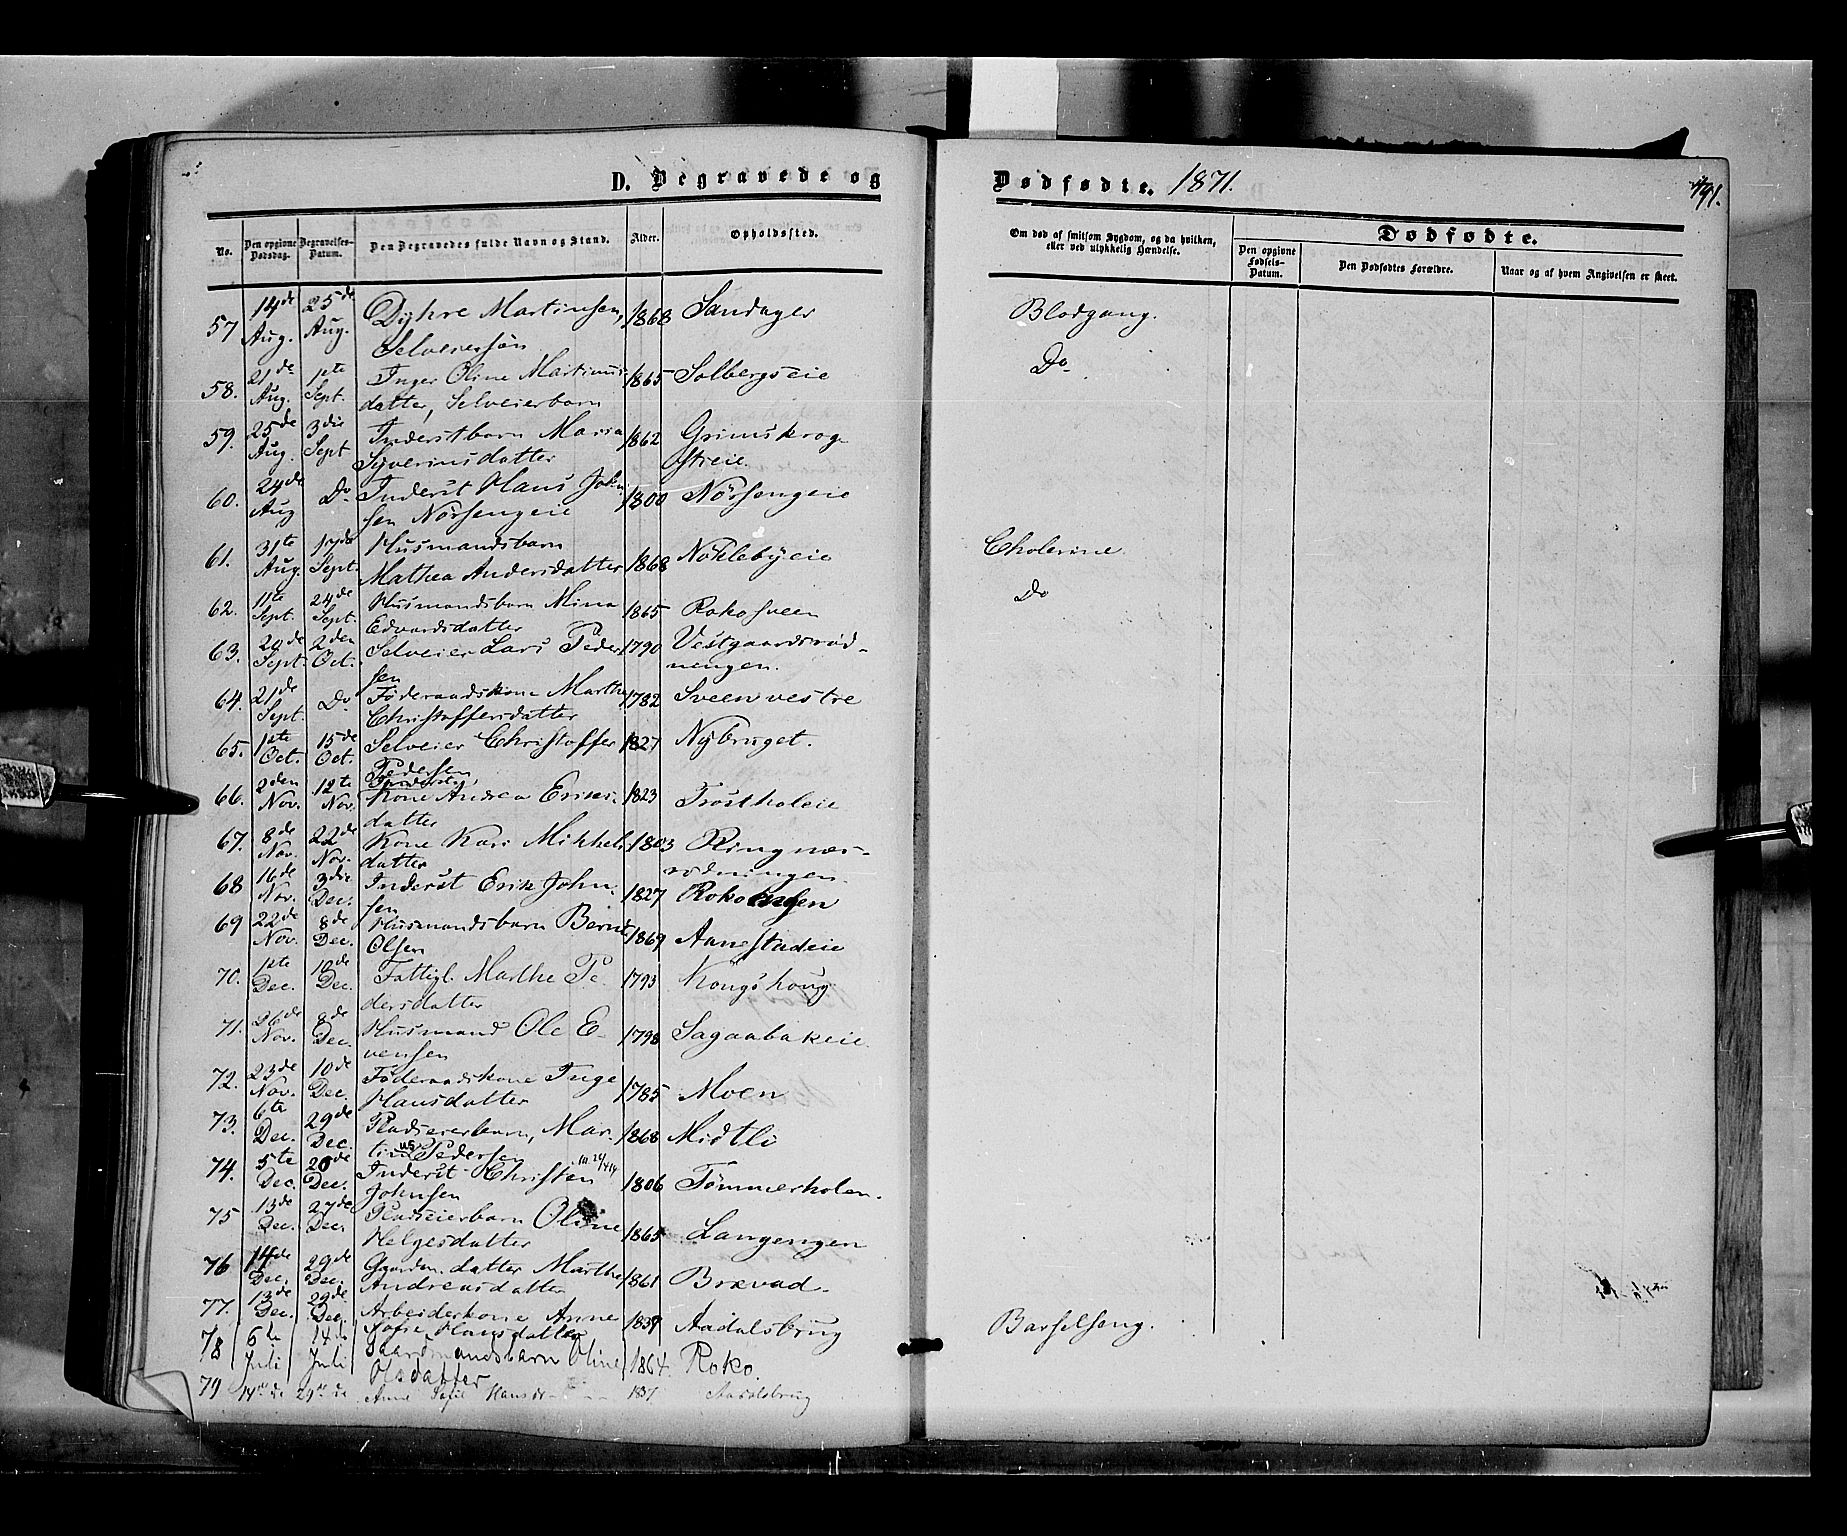 D. Begravede og
Dødfødte. 1871.
491.
No.
Den opgivne Dødsdag.
Begravelses-Datum.
Den Begravedes fulde Navn og Stand.
Alder.
Opholdssted.
Om død af smitsom Sygdom, og da hvilken, eller ved ulykkelig Hændelse.
Dødfødte.
Den opgivne Fødsels-Datum.
Den Dødfødtes Forældre.
Naar og af hvem Angivelsen er skeet.
57 14de Aug. 25de Aug. Dyhre Martinsen, Selveiersøn 1868 Sandager Blodgang.
58. 21de Aug. 1ste Sept. Inger Oline Martinusdatter, Selveierbarn 1865 Solbergseie Do
59. 25de Aug. 3die Sept Inderstbarn Maria Syverinsdatter 1862 Grimskrogstreie.
60. 24de Aug Do Inderst Hans Johnsen Nörsengeie 1800 Nörsengeie
61. 31te Aug. 17de Sept. Husmandsbarn Mathea Andersdatter 1868 Nöklebyeie Cholerine
62. 11te Sept. 24de Sept. Husmandsbarn Mina Edvardsdatter 1865 Rokosveen Do
63. 20de Sept. 2den Oct. Selveier Lars Pedersen 1790 Vestgaardsrødningen.
64. 21de Sept. Do Föderaadskone Marthe Christoffersdatter 1782 Sveen vestre
65. 1ste Oct. 15de Oct. Selveier Christoffer Pedersen 1827 Nybruget.
66. 2den Nov. 12te Nov. Kone Andrea Ericsdatter 1823 Trostholeie
67. 8de Nov. 22de Nov. Kone Kari Mikkelsdatter 1803 Ringnæsrödningen.
68 16de Nov. 3die Dec. Inderst Erik Johnsen 1827 Rokoengen
69 22de Nov. 8de Dec. Husmandsbarn Bernt Olsen 1869 Aanestadeie
70. 1ste Dec. 10de Dec. Fattigl. Marthe Pedersdatter 1793 Kongshoug
71. 26de Nov. 8de Dec. Husmand Ole Evensen 1798 Sagaabakeie
72. 23de Nov. 10de Dec. Föderaadskone Inge Hansdatter 1785 Moen
73. 6te Dec. 29de Dec. Pladseierbarn, Martinus Pedersen 1868 Midtli
74. 5te Dec. 20de Dec. Inderst Christen Johnsen 1806 Tömmerholen.
75 13de Dec. 27de Dec. Pladseierbarn Oline Helgesdatter 1865 Langengen
76 14de Dec. 29de Dec. Gaardm. datter Marthe Andreasdatter 1861 Brævad.
77. 13de Dec. 29de Dec. Arbeiderkone Anne Sofie Hansdatter 1837 Aadalsbrug Barselseng.
78 6te Juli 14de Juli Gaardmandsbarn Oline Olsdatter 1864. Roko.
79 14de 29de Anne Sofie Hansdr 1837 Aadalsbrug